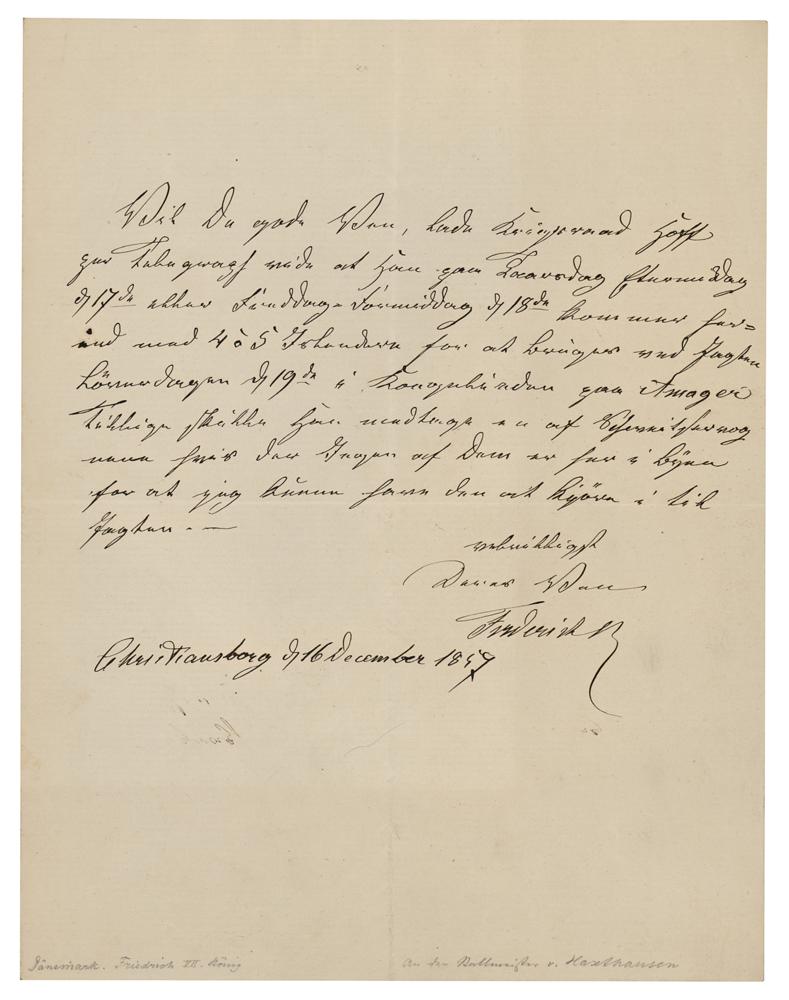 Vil De gode Ven, lade Krigsraad Hoff
per Telegraph vide at Han paa Torsdag Eftermiddag
d 17de eller Freddag-Formiddag d 18de kommer her=
ind med 4 à 5 Islændere for at bruges ved Jagten
Löverdagen d 19de i Kongelunden paa Amager
Tillige skulle Han medtage en af
hvis der Ingen af Dem er her i Byen
for at jeg kunne have den at kjöre i til
Jagten. —
velvilligst
Deres Ven
Frederik R
Christiansborg d 16 December 1857
Dänemark. Friedrich VII. König
An den Stallmeister v. Haxthausen